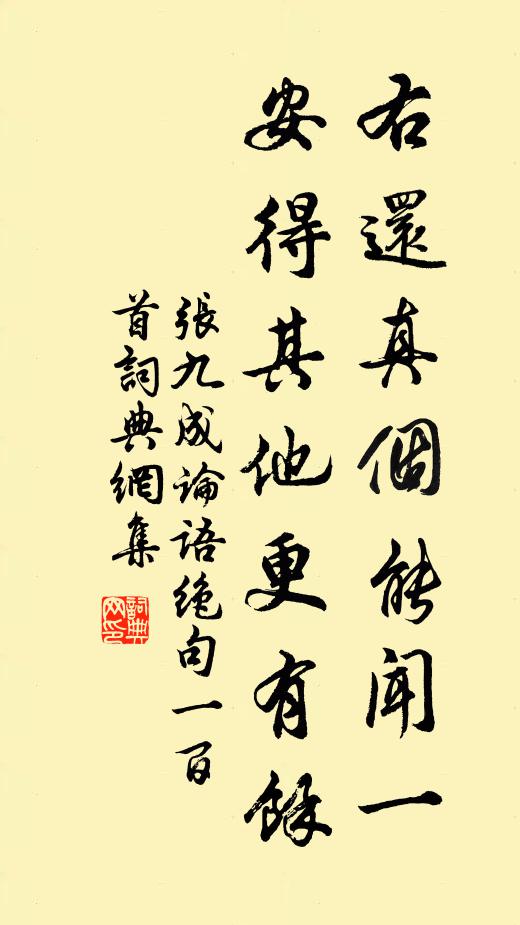 右還真個能聞一
安得其他更有餘
張九成論語絕句一百
首詞典網集
詞典
网印